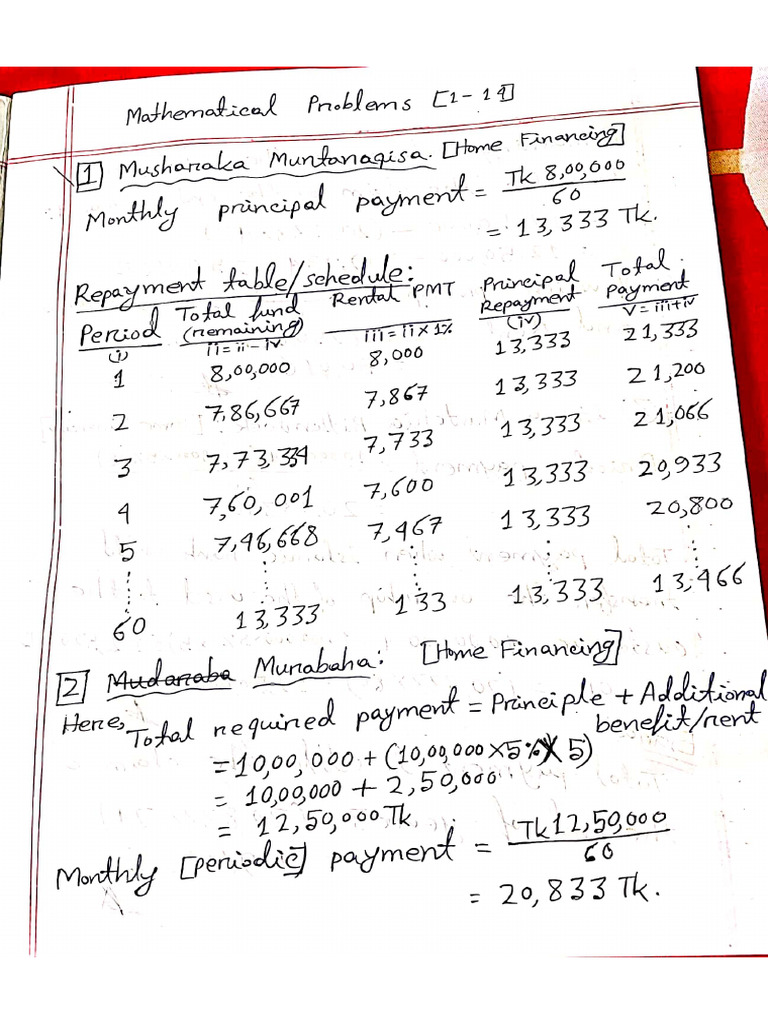 Mathematical Problems [1-11]
1 Musharaka Muntanaqisa. [Home Financing]
Monthly principal payment = Tk 8,00,000 / 60
= 13,333 Tk.
Repayment table/schedule:
Period (i) Total fund (remaining) ii = ii - iv Rental PMT iii = ii × 1% Principal Repayment (iv) Total Payment v = iii+iv
1 8,00,000 8,000 13,333 21,333
2 7,86,667 7,867 13,333 21,200
3 7,73,334 7,733 13,333 21,066
4 7,60,001 7,600 13,333 20,933
5 7,46,668 7,467 13,333 20,800
60 13,333 133 13,333 13,466
2 Mudaraba Murabaha: [Home Financing]
Here, Total required payment = Principle + Additional benefit/rent
= 10,00,000 + (10,00,000 × 5% × 5)
= 10,00,000 + 2,50,000
= 12,50,000 Tk
Monthly [periodic] payment = Tk 12,50,000 / 60
= 20,833 Tk.